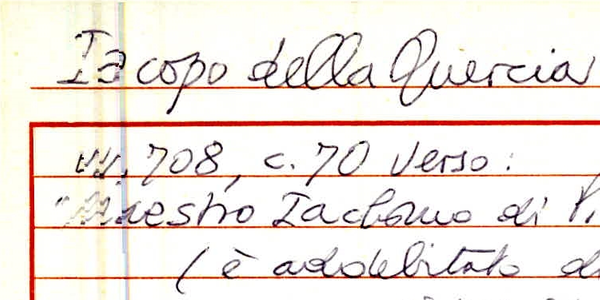 Iacopo della Quercia
n. 708, c. 70 verso:
"Maestro Iachomo di P.
(è addebitato d